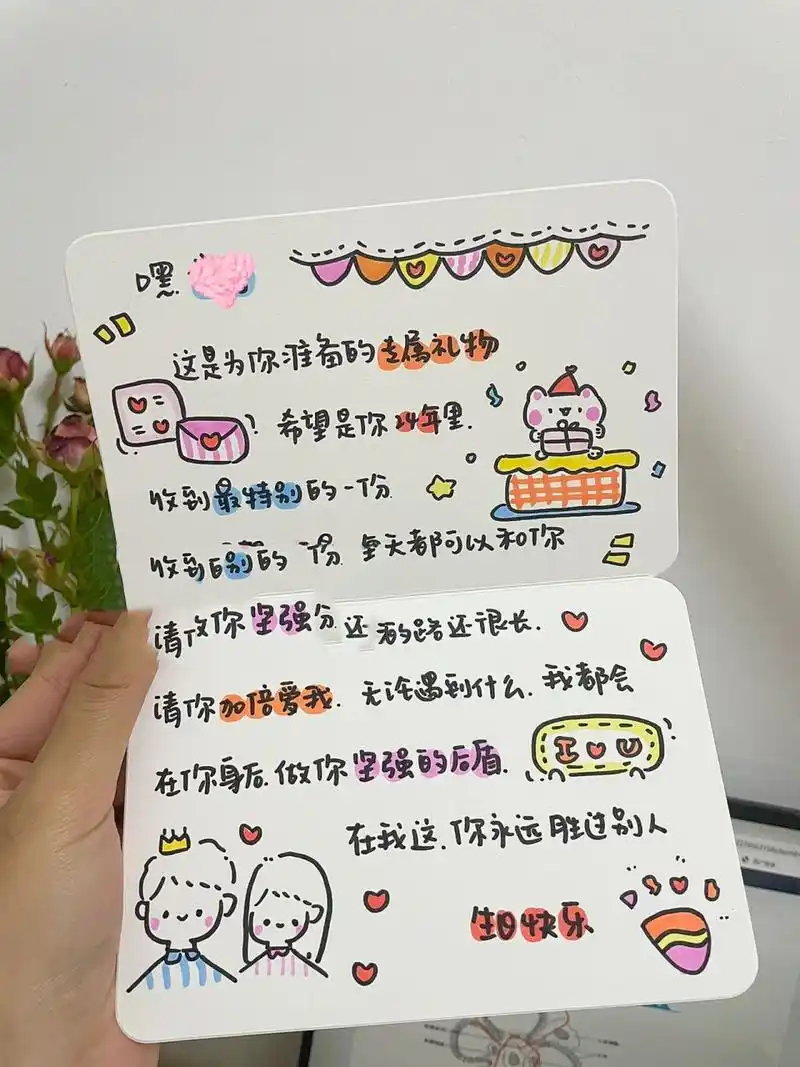 嘿
这是为你准备的专属礼物
希望是你24年里.
收到最特别的一份
收到的别的 份 天都可以和你
请 你坚强 还 的路还很长.
请你加倍爱我. 无论遇到什么. 我都会
在你身后.做你坚强的后盾.
I U
在我这.你永远胜过别人
生日快乐